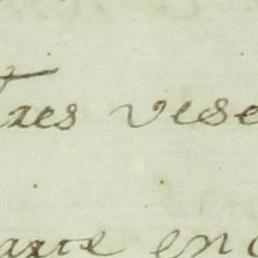 tres vese
arte en